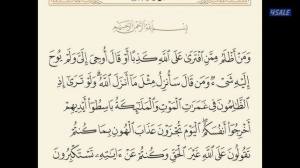 4SALE
بِسْمِ اللَّهِ الرَّحْمَٰنِ الرَّحِيمِ
وَمَنْ أَظْلَمُ مِمَّنِ افْتَرَىٰ عَلَى اللَّهِ كَذِبًا أَوْ قَالَ أُوحِيَ إِلَيَّ وَلَمْ يُوحَ
إِلَيْهِ شَيْءٌ وَمَن قَالَ سَأُنزِلُ مِثْلَ مَا أَنزَلَ اللَّهُ وَلَوْ تَرَىٰ إِذِ
الظَّالِمُونَ فِي غَمَرَاتِ الْمَوْتِ وَالْمَلَائِكَةُ بَاسِطُو أَيْدِيهِمْ
أَخْرِجُوا أَنفُسَكُمُ الْيَوْمَ تُجْزَوْنَ عَذَابَ الْهُونِ بِمَا كُنتُمْ
تَقُولُونَ عَلَى اللَّهِ غَيْرَ الْحَقِّ وَكُنتُمْ عَنْ آيَاتِهِ تَسْتَكْبِرُونَ